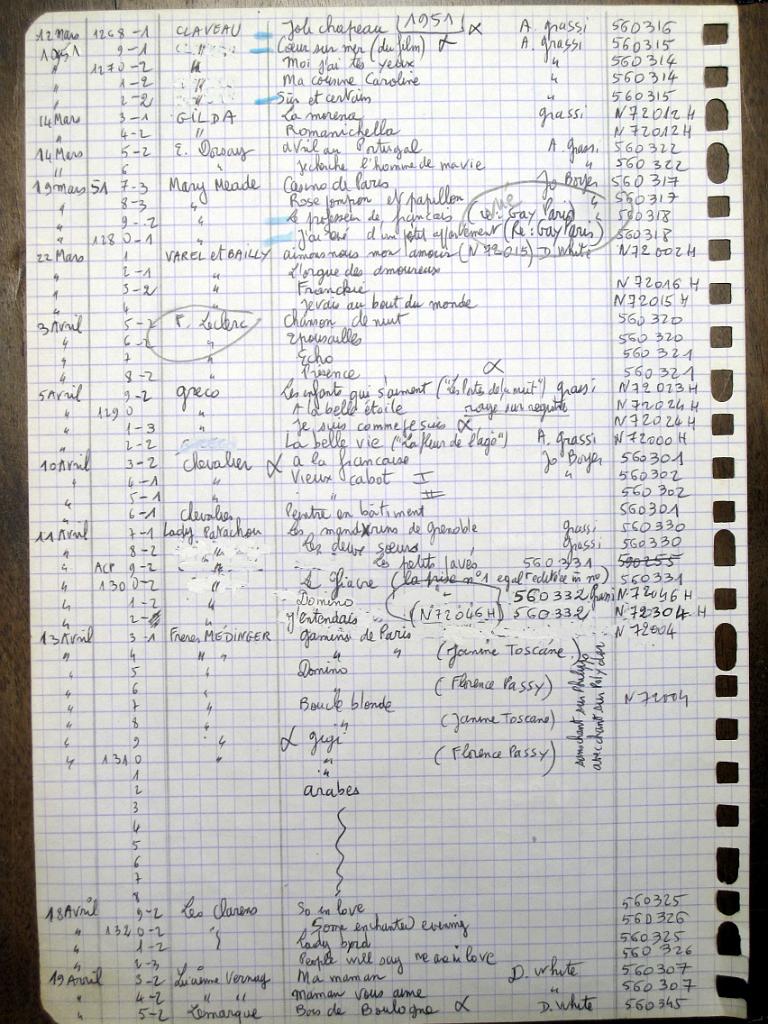 12 Mars 1268-1 CLAVEAU Joli chapeau (1951) α A. grassi 560316
1951 9-1 " Cœur sur mer (du film) α A. grassi 560315
" 1270-2 " Moi j'ai tes yeux " 560314
" 1-2 " Ma cousine Caroline " 560314
" 2-2 " Sûr et certain " 560315
14 Mars 3-1 GILDA La morena grassi N72012H
" 4-2 " Romanichella N72012H
14 Mars 5-2 E. Dorsay avril au Portugal A. grassi 560322
" 6 " je cherche l'homme de ma vie " 560322
19 mars 51 7-3 Mary Meade Casino de Paris Jo Boyer 560317
" 8-3 " Rose pompon et papillon " 560317
" 9-2 " Le professeur de français (re: Gay Paris) " 560318
" 1280-1 " J'ai rêvé d'un petit appartement (Re: Gay Paris) 560318
22 Mars 1 VAREL et BAILLY aimons nous mon amour (N72015) D. White N72002H
" 2-1 " L'orgue des amoureux
" 3-2 " Francine N72016H
" 4 " je vais au bout du monde N72015H
3 Avril 5-2 P. Leclerc Chanson de nuit 560320
" 6-2 " Epousailles 560320
" 7 " Echo 560321
" 8-2 " Présence α 560321
5 Avril 9-2 greco Les enfants qui s'aiment ("Les Portes de la nuit") grassi N72023H
" 1290 " A la belle étoile N72024H
" 1-3 " je suis comme je suis α N72024H
" 2-2 La belle vie ("La fleur de l'age") A. grassi N72000H
10 Avril 3-2 Chevalier α a la française Jo Boyer 560301
" 4-1 " Vieux cabot I " 560302
" 5-1 " II 560302
" 6-1 Chevalier Peintre en bâtiment 560301
11 Avril 7-1 Lady Patachou Les mandarins de grenoble grassi 560330
" 8-2 Les deux sœurs grassi 560330
" ACP 9-2 Les petits pavés 560331 560255
" 1300-2 Le fiacre (la prise n°1 egalt editée in no) 560331
" 1-2 Domino " 560332 grassi N72046H
" 2- j'entendais (N72046H) 560332 N72304H
13 Avril 3-1 Freres MÉDINGER gamins de Paris N72004
" 4 " " " " (Janine Toscane)
" 5 " Domino
" 6 " " (Florence Passy)
" 7 " Boucle blonde N72004
" 8 " " (Janine Toscane)
" 9 " α gigi
" 1310 " " (Florence Passy)
sans chant sur Philips
avec chant sur Polydor
1
2 arabes
3
4
5
6
7
8
18 Avril 9-2 Les Clarens So in love 560325
" 1320-2 Some enchanted evening 560326
" 1-2 Lady bird 560325
" 2-3 People will say we are in love 560326
19 Avril 3-2 Lucienne Vernay Ma maman D. White 560307
" 4-2 " " Maman vous aime " 560307
" 5-2 Lemarque Bois de Boulogne α D. White 560345